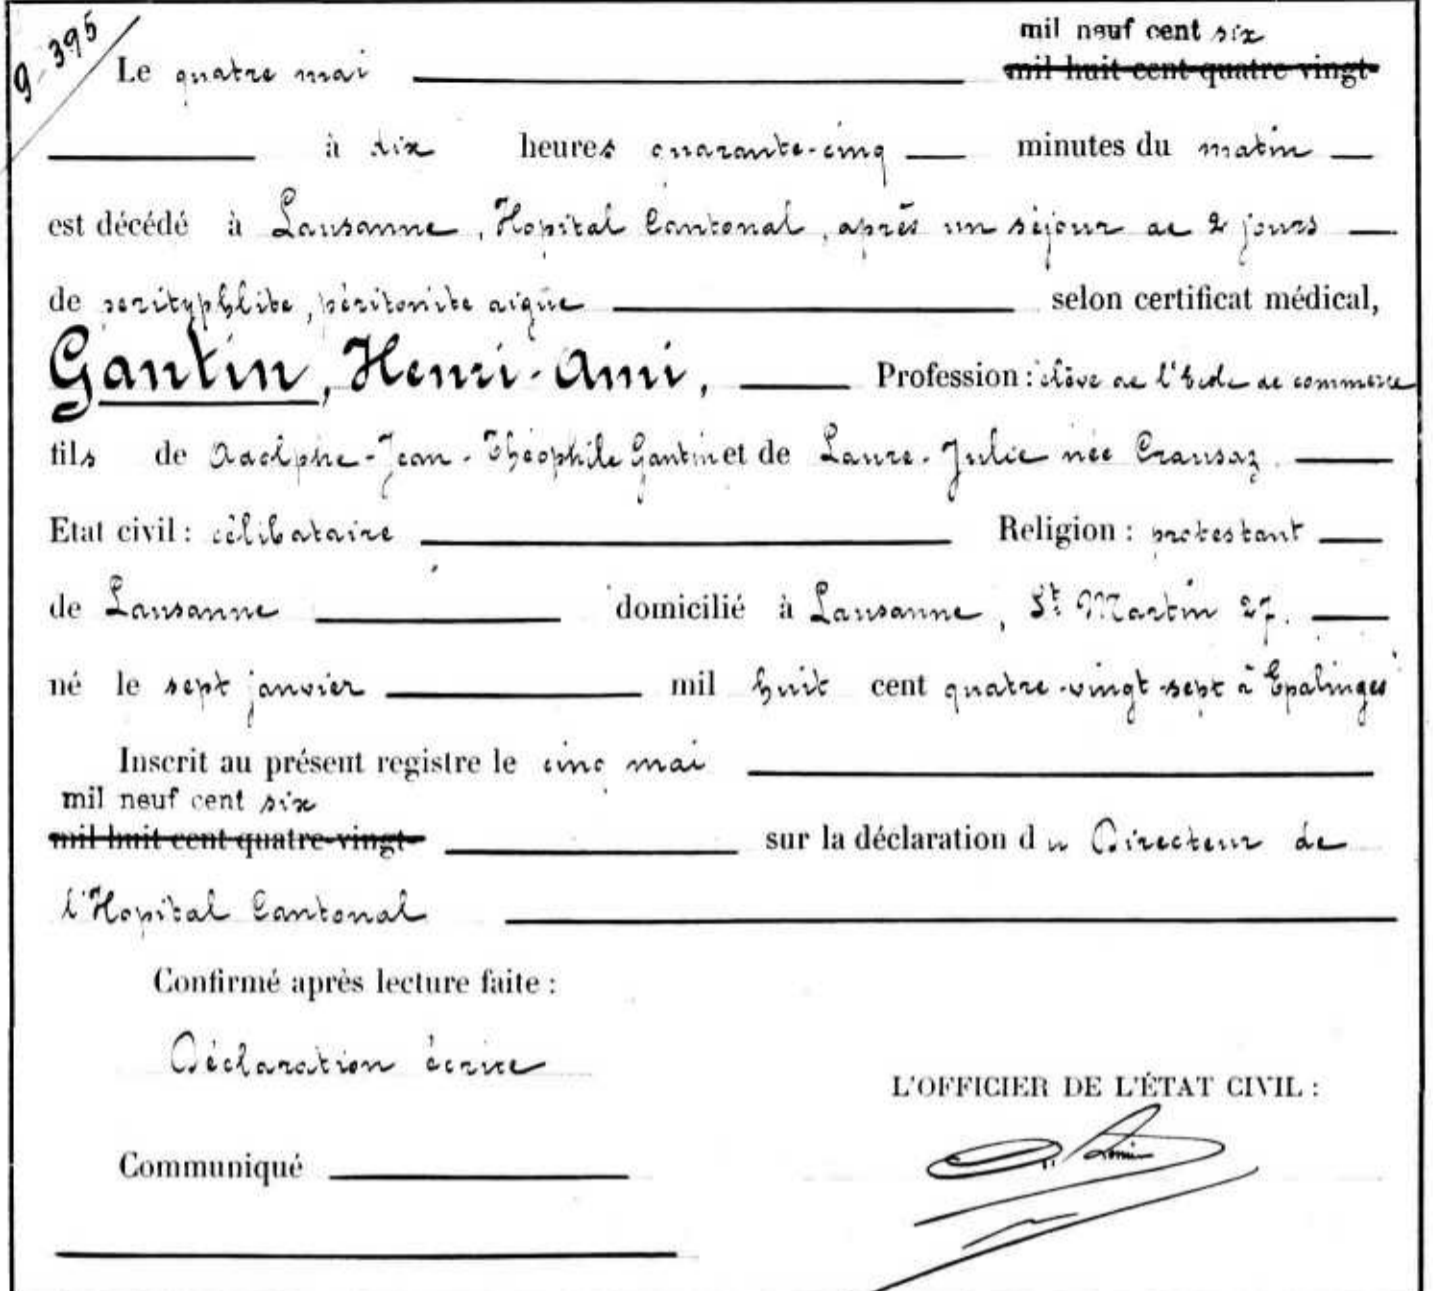 9-395
mil neuf cent six
Le quatre mai mil huit cent quatre-vingt-
à dix heures quarante-cinq minutes du matin
est décédé à Lausanne, Hopital Cantonal, après un séjour de 2 jours
de pérityphlite, péritonite aigüe selon certificat médical,
Gantin, Henri-Ami, Profession : élève de l'Ecole de commerce
fils de Adolphe-Jean-Théophile Gantin et de Laure-Julie née Crausaz
Etat civil : célibataire Religion : protestant
de Lausanne domicilié à Lausanne, St Martin 27.
né le sept janvier mil huit cent quatre-vingt-sept à Epalinges
Inscrit au présent registre le cinq mai
mil neuf cent six
mil huit cent quatre-vingt- sur la déclaration du Directeur de
l'Hopital Cantonal
Confirmé après lecture faite :
Déclaration écrite
L'OFFICIER DE L'ÉTAT CIVIL :
Communiqué